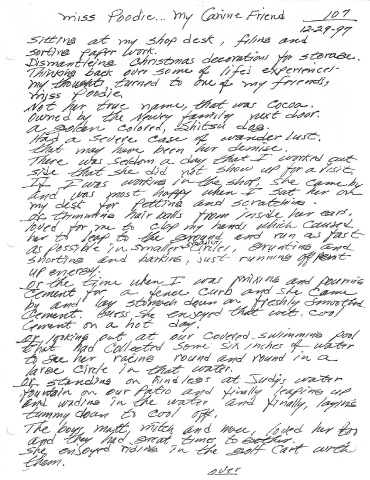 miss Poodie... my Canine Friend 107
12-29-97
Sitting at my shop desk, filing and
sorting paper work.
Dismantleing Christmas decorations for storage.
Thinking back over some of life's experiences
my thought turned to one of my friends,
miss Poodie.
Not her true name, that was Cocoa.
Owned by the family next door.
a golden colored, Shitsu dog.
Had a severe case of wander lust.
that may have been her demise.
There was seldom a day that I worked out
side that she did not show up for a visit.
If I was working in the shop, she came by
and was most happy when I sat her on
my desk for petting and scratching.
or trimming hair balls from inside her ears,
loved for me to clap my hands which caused
her to leap to the ground and run as fast
as possible in circles, grunting and
snorting and barking, just running off pent
up energy.
Or the time when I was mixing and pouring
cement for a fence curb and she came
by and lay stomach down on freshly smoothed
cement. Guess she enjoyed that wet, cool
cement on a hot day.
or looking out at our covered swimming pool
that had collected some six inches of water
to see her racing round and round in a
large circle in that water.
Or standing on hind legs at Judy's water
fountain on our patio and finally leaping up
and wading in the water and finally, laying
tummy down to cool off.
The boys, matt, mitch and loved her too
and they had great times together.
She enjoyed riding in the golf cart with
them.
over